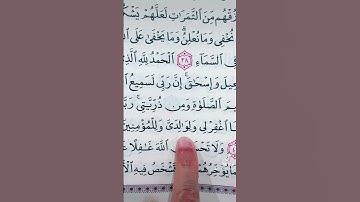 زُقْهُم مِّنَ الثَّمَرَاتِ لَعَلَّهُمْ يَشْكُ
نُخْفِي وَمَا نُعْلِنُ ۗ وَمَا يَخْفَىٰ عَلَى
فِي السَّمَاءِ ٣٨ الْحَمْدُ لِلَّهِ الَّذِي
عِيلَ وَإِسْحَاقَ ۚ إِنَّ رَبِّي لَسَمِيعُ
مَ الصَّلَوٰةِ وَمِن ذُرِّيَّتِي ۚ رَبَّ
نَا اغْفِرْ لِي وَلِوَالِدَيَّ وَلِلْمُؤْمِنِينَ
وَلَا تَحْسَ اللَّهَ غَافِلًا
مَا يُؤَخِّرُهُمْ تَشْخَصُ فِيهِ الْأ